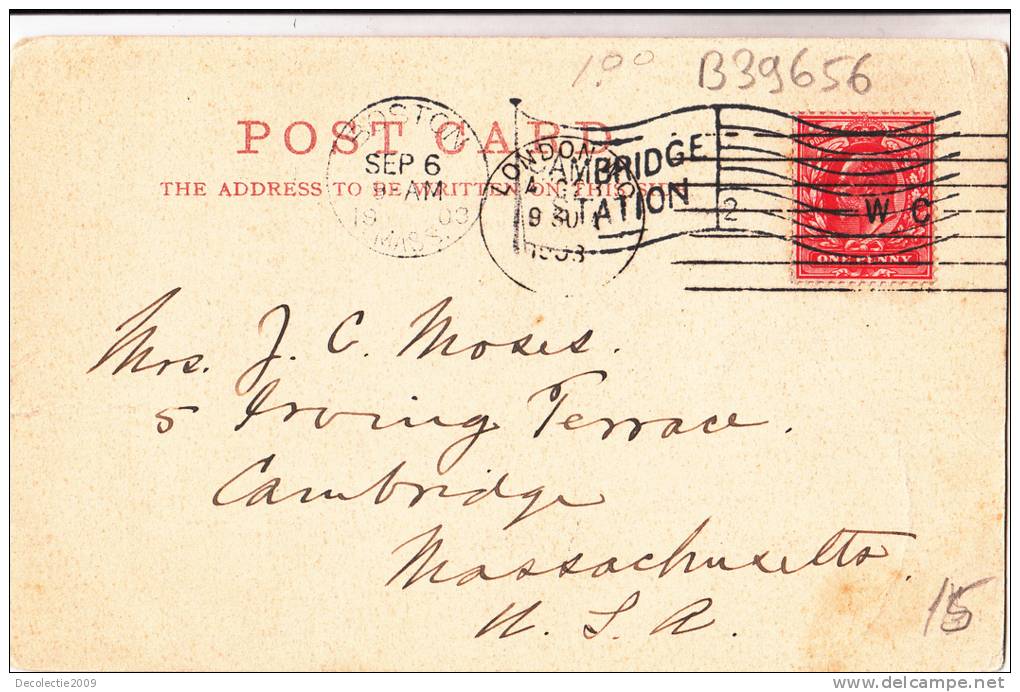 1.00 B39656
POST CARD
THE ADDRESS TO BE WRITTEN ON THIS SIDE
BOSTON
SEP 6
AM
1903
MASS.
LONDON
9 30
1903
CAMBRIDGE
STATION
2
W C
ONE PENNY
Mrs. J. C. Moses.
5 Irving Terrace.
Cambridge
Massachusetts.
U. S. A.
15
Decolectie2009
www.delcampe.net